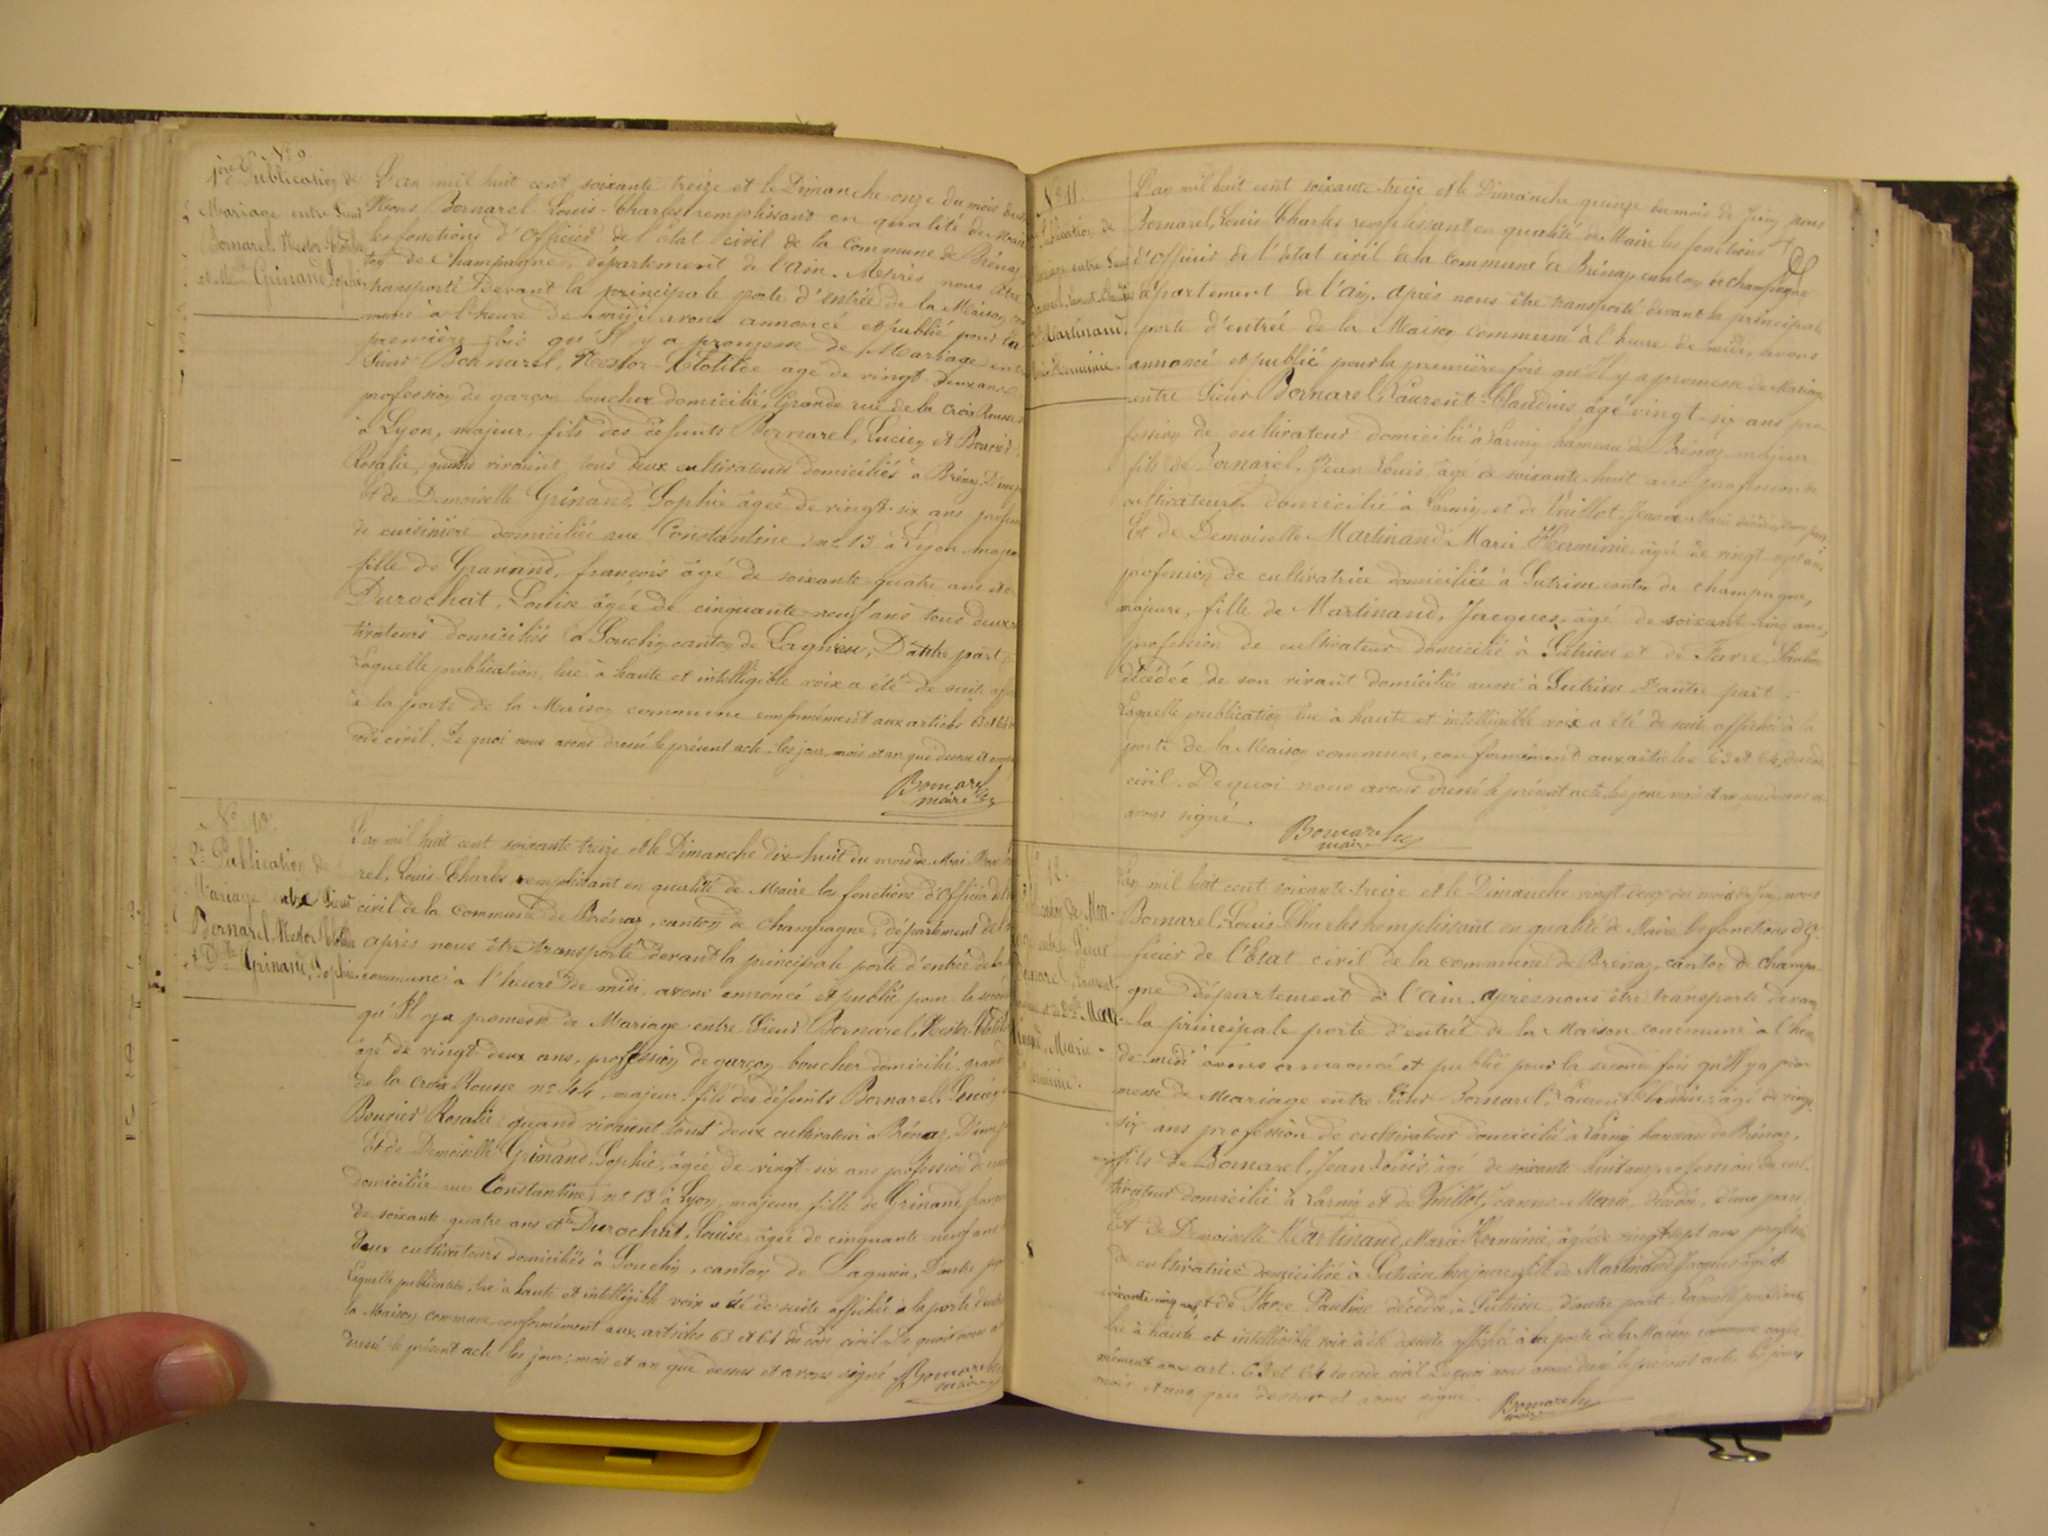 N° 9
1ère Publication de
Mariage entre Sieur
Bornarel Nestor
et Dlle Grinand Sophie
L'an mil huit cent soixante treize et le Dimanche onze du mois de
Nous Bornarel Louis-Charles remplissant en qualité de Maire
les fonctions d'Officier de l'état civil de la Commune de Brénaz
ton de Champagne, département de l'ain. Après nous être
transporté devant la principale porte d'entrée de la Maison com
mune à l'heure de midi, avons annoncé et publié pour la
première fois qu'Il y a promesse de Mariage entre
Sieur Bornarel, Nestor agé de vingt-deux ans
profession de garçon boucher domicilié, Grande rue de la Croix Rousse
à Lyon, majeur, fils des défunts Bornarel, Lucien et Bouvier
Rosalie, quand vivaient tous deux cultivateurs domiciliés à Brénaz D'une p
Et de Demoiselle Grinand, Sophie âgée de vingt-six ans profes
de cuisinière domiciliée rue Constantine, n° 13 à Lyon, maje
fille de Grinand, françois âgé de soixante quatre ans et de
Durochat, Louise âgée de cinquante-neuf ans tous deux cul
tivateurs domiciliés à Souclin canton de Lagnieu, D'autre part
Laquelle publication, lue à haute et intelligible voix a été de suite affi
à la porte de la Maison commune conformément aux articles 63 et 64 du
code civil. De quoi nous avons dressé le présent acte les jour, mois et an que dessus et avons
Bornarel
maire
N° 10
2e Publication de
Mariage entre Sieur
Bornarel, Nestor
et Dlle Grinand, Sophie
L'an mil huit cent soixante treize et le Dimanche dix-huit du mois de Mai Nous Borna
rel, Louis Charles remplissant en qualité de Maire les fonctions d'Officier de l'é
civil de la Commune de Brénaz, canton de Champagne, département de l'
après nous être transporté devant la principale porte d'entrée de la
commune à l'heure de midi, avons annoncé et publié pour la seconde
qu'Il y a promesse de Mariage entre Sieur Bornarel, Nestor
âgé de vingt-deux ans, profession de garçon boucher domicilié grand
de la Croix Rousse n° 44, majeur, fils des défunts Bornarel, Lucien
Bouvier Rosalie quand vivaient tous deux cultivateurs à Brénaz, D'une p
Et de Demoiselle Grinand, Sophie, âgée de vingt-six ans profession de cuis
domiciliée rue Constantine, n° 13 à Lyon, majeure, fille de Grinand fran
de soixante quatre ans et de Durochat, Louise âgée de cinquante-neuf ans
deux cultivateurs domiciliés à Souclin, canton de Lagnieu, D'autre pa
Laquelle publication, lue à haute et intelligible voix a été de suite affichée à la porte d'entrée
la Maison commune conformément aux articles 63 et 64 du code civil. De quoi nous a
dressé le présent acte les jour, mois et an que dessus et avons signé Bornarel
maire
N° 11.
Publication de
Mariage entre Sieur
Bornarel, Laurent
Martinand,
Marie Herminie.
L'an mil huit cent soixante-treize et le Dimanche quinze du mois de Juin, nous
Bornarel, Louis Charles remplissant en qualité de Maire les fonctions
d'Officier de l'état civil de la Commune de Brénaz canton de champagne
département de l'ain, après nous être transporté devant la principale
porte d'entrée de la Maison commune à l'heure de midi, avons
annoncé et publié pour la première fois qu'Il y a promesse de Mariage
entre Sieur Bornarel, Laurent-Claudius âgé vingt-six ans pro
fession de cultivateur domicilié à Larmy hameau de Brénaz, majeur
fils de Bornarel, Jean Louis âgé de soixante-huit ans profession de
cultivateur, domicilié à Larmy et de Vuillot, Jeanne-Marie décédée D'une part
Et de Demoiselle Martinand Marie Herminie âgée de vingt-sept ans
profession de cultivatrice domiciliée à Sutrieu canton de champagne,
majeure, fille de Martinand, Jacques, âgé de soixante-cinq ans,
profession de cultivateur domicilié à Sutrieu et de Pauline
décédée de son vivant domicilié aussi à Sutrieu D'autre part.
Laquelle publication lue à haute et intelligible voix a été de suite affichée à la
porte de la Maison commune, conformément aux articles 63 et 64 du code
civil. De quoi nous avons dressé le présent acte les jour, mois et an que dessus et
avons signé.
Bornarel
maire
N° 12.
Publication de Ma-
riage entre Sieur
Bornarel, Laurent-
et Dlle Mar-
tinand, Marie-
Herminie.
L'an mil huit cent soixante-treize et le Dimanche vingt-deux du mois de Juin, nous
Bornarel, Louis Charles remplissant en qualité de Maire les fonctions d'Of-
ficier de l'Etat civil de la commune de Brénaz, canton de Champa-
gne département de l'ain, après nous être transporté devant
la principale porte d'entrée de la Maison commune à l'heure
de midi avons annoncé et publié pour la seconde fois qu'Il y a pro-
messe de Mariage entre Sieur Bornarel, Laurent-Claudius, âgé de vingt-
six ans profession de cultivateur domicilié à Larmy hameau de Brénaz,
fils de Bornarel, Jean Louis, âgé de soixante-huit ans profession de cul-
tivateur domicilié à Larmy et de Vuillot, Jeanne-Marie, décédée, D'une part
Et de Demoiselle Martinand, Marie Herminie, âgée de vingt-sept ans profession
de cultivatrice domiciliée à Sutrieu, majeure, fille de Martinand Jacques âgé de
soixante-cinq ans et de Pauline décédée à Sutrieu, D'autre part. Laquelle publication
lue à haute et intelligible voix a été de suite affichée à la porte de la Maison commune confor-
mément aux art. 63 et 64 du code civil De quoi nous avons dressé le présent acte les jour,
mois et an que dessus et avons signé.
Bornarel
maire